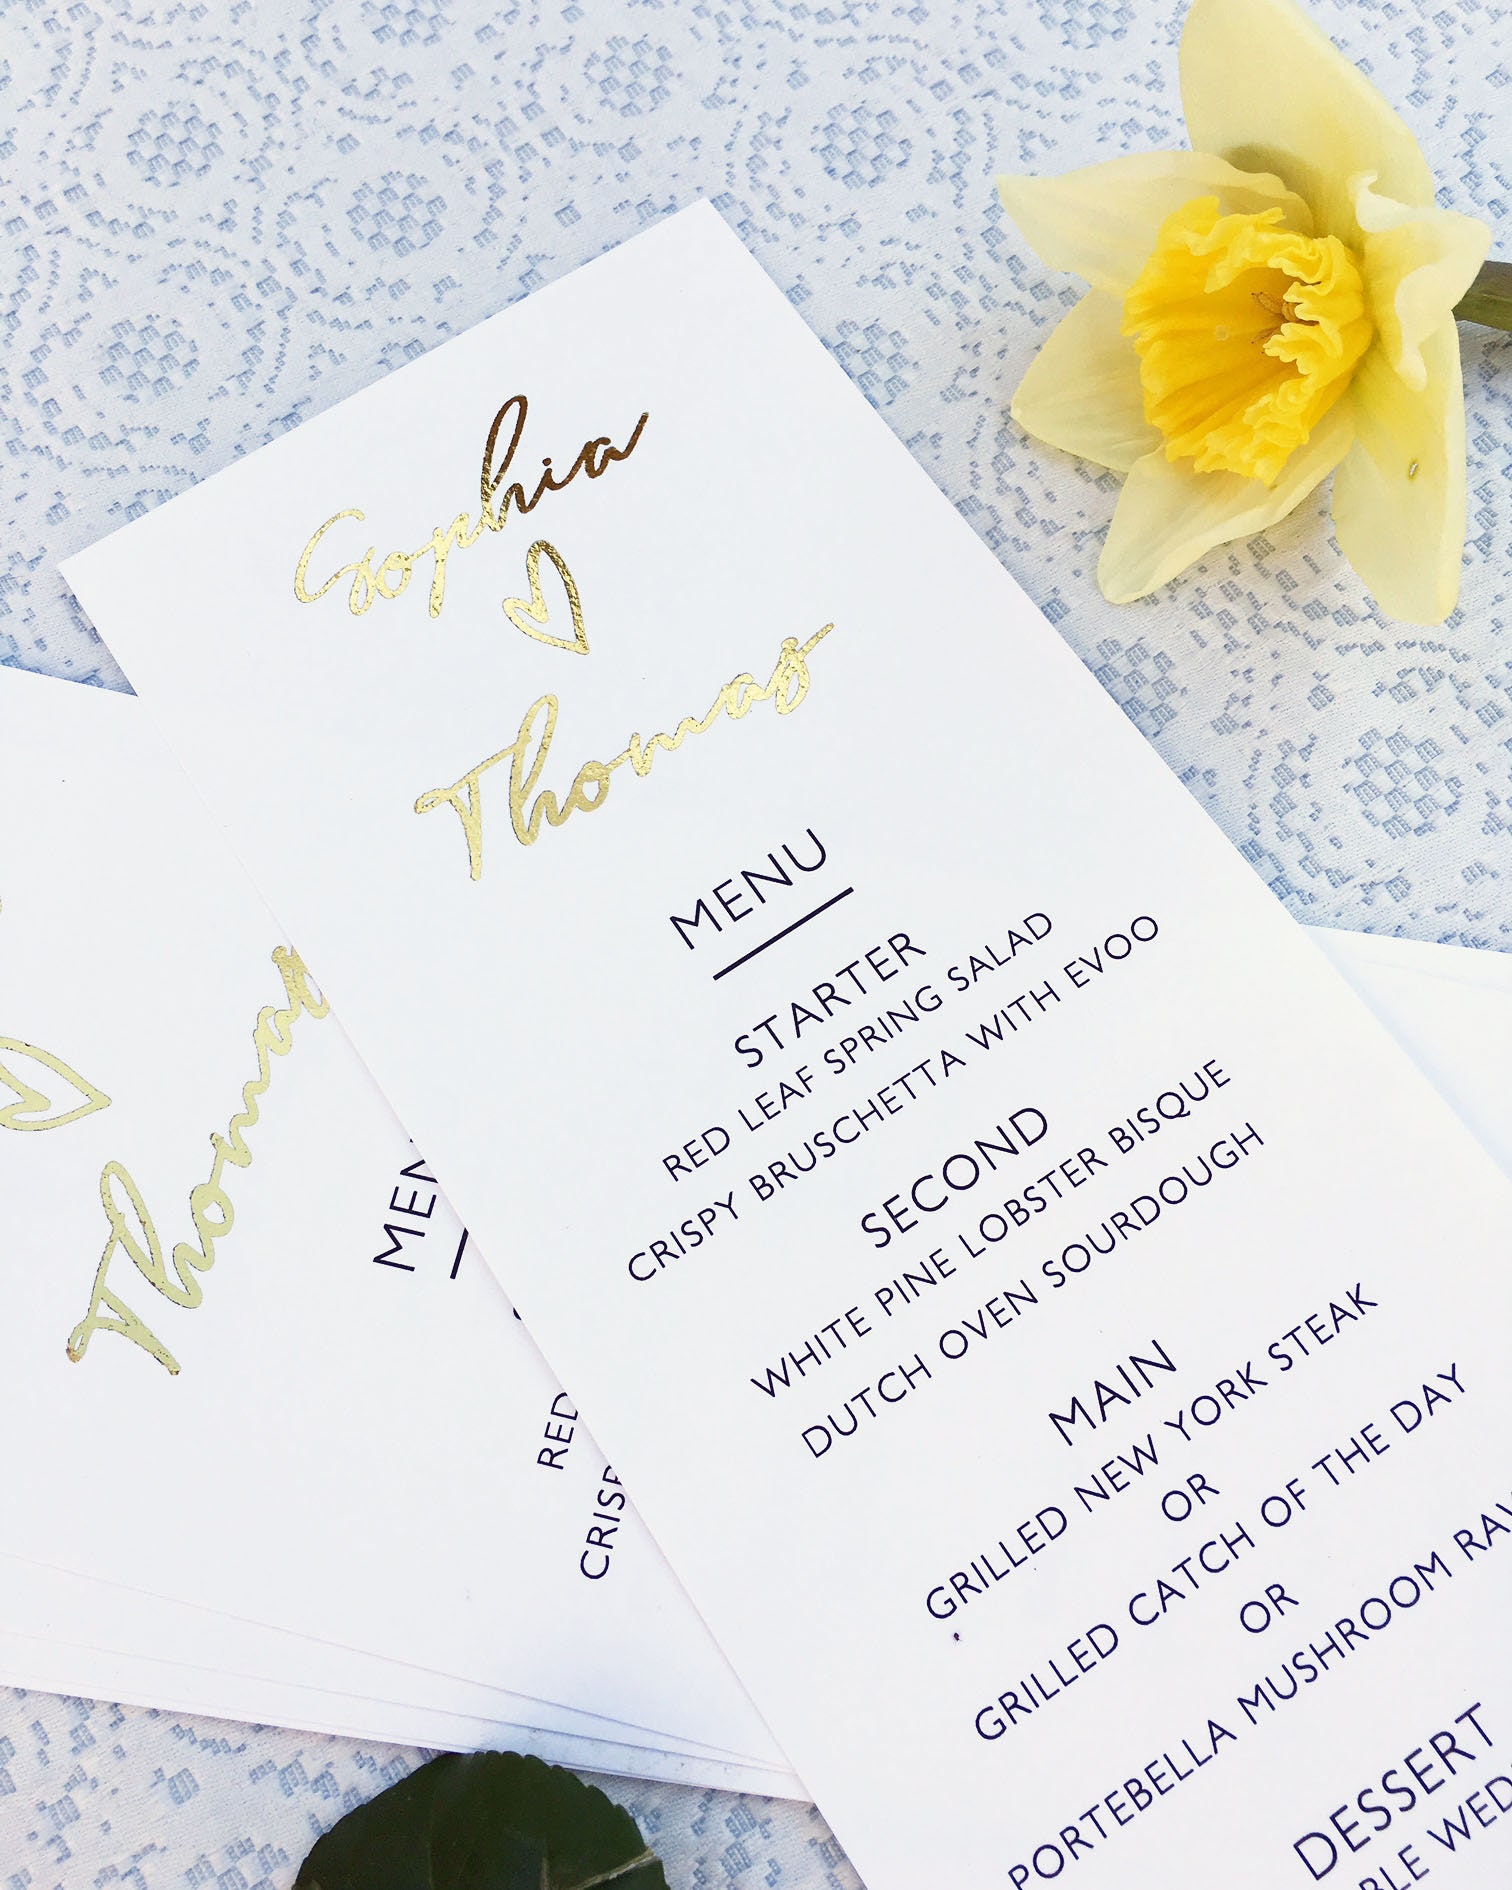 Sophia
Thomas
MENU
STARTER
RED LEAF SPRING SALAD
CRISPY BRUSCHETTA WITH EVOO
SECOND
WHITE PINE LOBSTER BISQUE
DUTCH OVEN SOURDOUGH
MAIN
GRILLED NEW YORK STEAK
OR
GRILLED CATCH OF THE DAY
OR
PORTEBELLA MUSHROOM
DESSERT
Thomas
RED